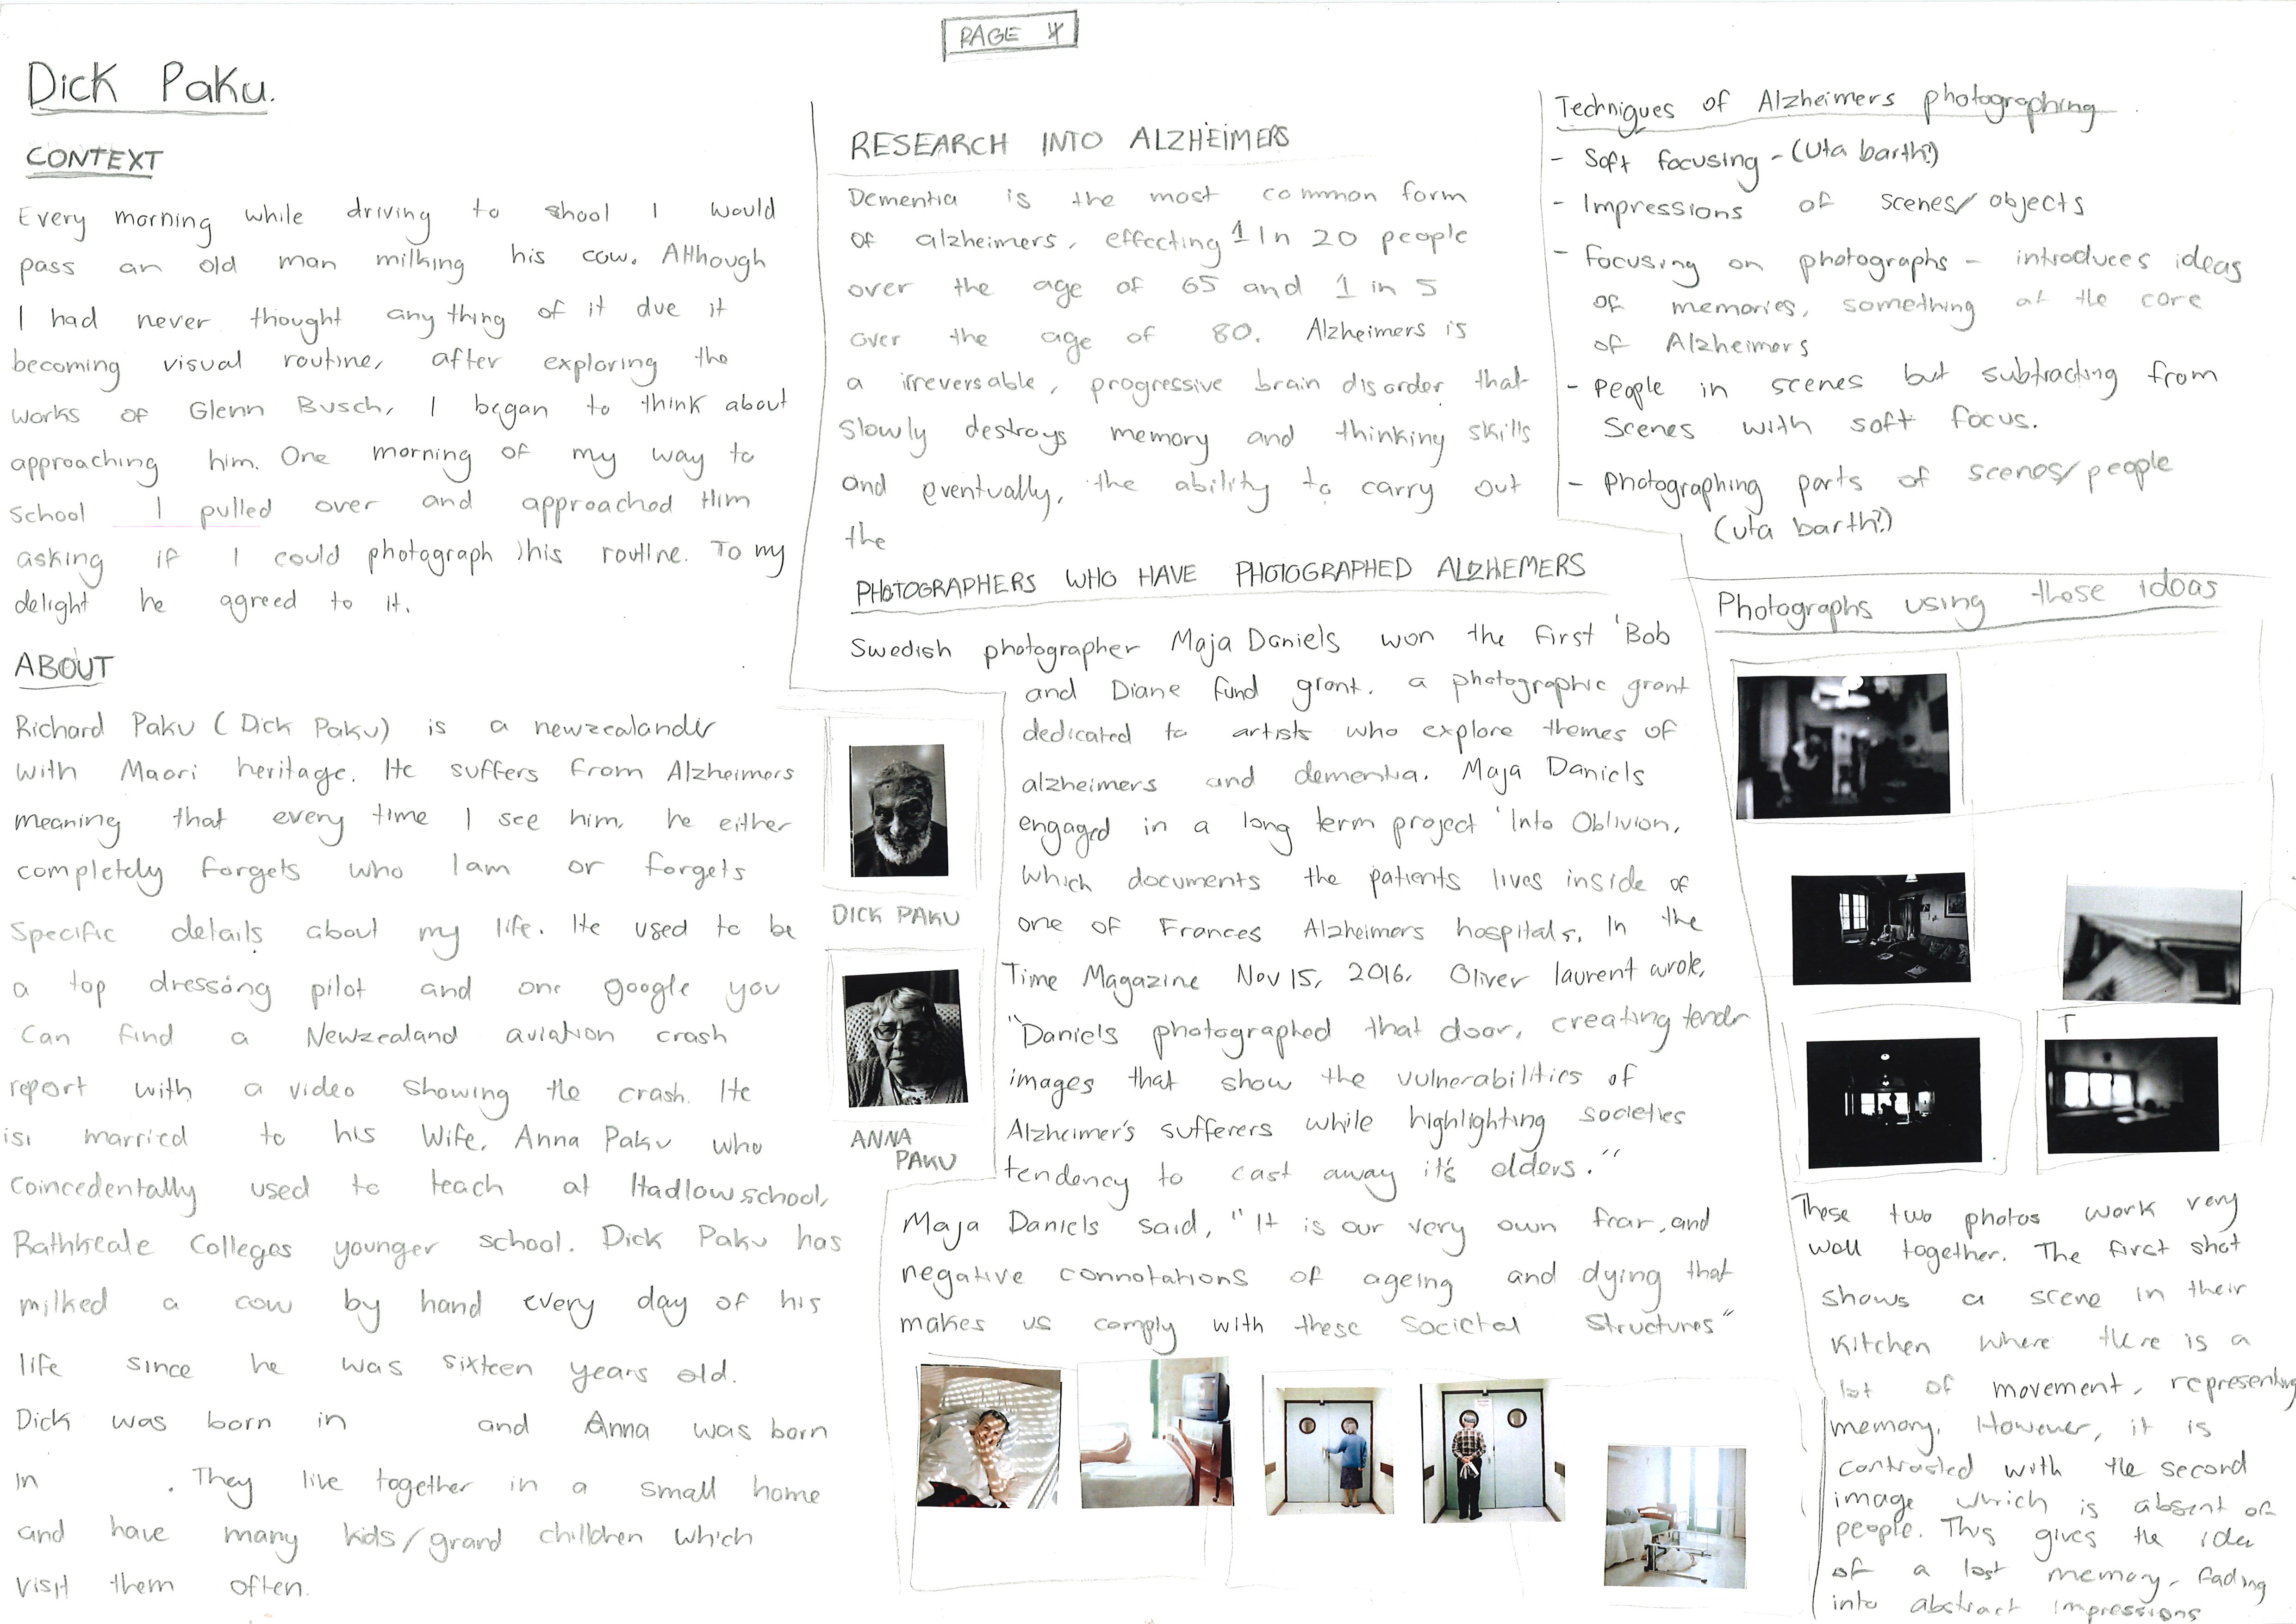 PAGE 4
Dick Paku.
CONTEXT
Every morning while driving to shool I would
pass an old man milking his cow. Although
I had never thought anything of it due it
becoming visual routine, after exploring the
works of Glenn Busch, I began to think about
approaching him. One morning of my way to
school I pulled over and approached Him
asking if I could photograph his routine. To my
delight he agreed to it.
ABOUT
Richard Paku (Dick Paku) is a newzealander
with Maori heritage. He suffers from Alzheimers
meaning that every time I see him, he either
completely forgets who I am or forgets
Specific details about my life. He used to be
a top dressing pilot and one google you
can find a Newzealand aviation crash
report with a video showing the crash. He
is married to his Wife, Anna Paku who
coincedentally used to teach at Hadlow school,
Rathkeale Colleges younger school. Dick Paku has
milked a cow by hand every day of his
life since he was sixteen years old.
Dick was born in and Anna was born
in . They live together in a small home
and have many kids/grand children which
visit them often.
DICK PAKU
ANNA
PAKU
RESEARCH INTO ALZHEIMERS
Dementia is the most common form
of alzheimers, effecting 1 in 20 people
over the age of 65 and 1 in 5
over the age of 80. Alzheimers is
a irreversable, progressive brain disorder that
slowly destroys memory and thinking skills
and eventually, the ability to carry out
the
PHOTOGRAPHERS WHO HAVE PHOTOGRAPHED ALZHEMERS
Swedish photographer Maja Daniels won the first 'Bob
and Diane fund grant, a photographic grant
dedicated to artists who explore themes of
alzheimers and dementia. Maja Daniels
engaged in a long term project 'Into Oblivion,
which documents the patients lives inside of
one of Frances Alzheimers hospitals. In the
Time Magazine Nov 15, 2016. Oliver laurent wrote,
"Daniels photographed that door, creating tender
images that show the vulnerabilities of
Alzheimer's sufferers while highlighting societies
tendency to cast away it's elders."
Maja Daniels said, "It is our very own fear, and
negative connotations of ageing and dying that
makes us comply with these societal structures"
Techniques of Alzheimers photographing
- Soft focusing - (Uta barth?)
- Impressions of scenes/objects
- Focusing on photographs - introduces ideas
of memories, something at the core
of Alzheimers
- People in scenes but subtracting from
Scenes with soft focus.
- Photographing parts of scenes/people
(uta barth?)
Photographs using these ideas
T
These two photos work very
well together. The first shot
shows a scene in their
Kitchen where there is a
lot of movement, representing
memory. However, it is
contrasted with the second
image which is absent of
people. This gives the idea
of a lost memory, fading
into abstract impressions